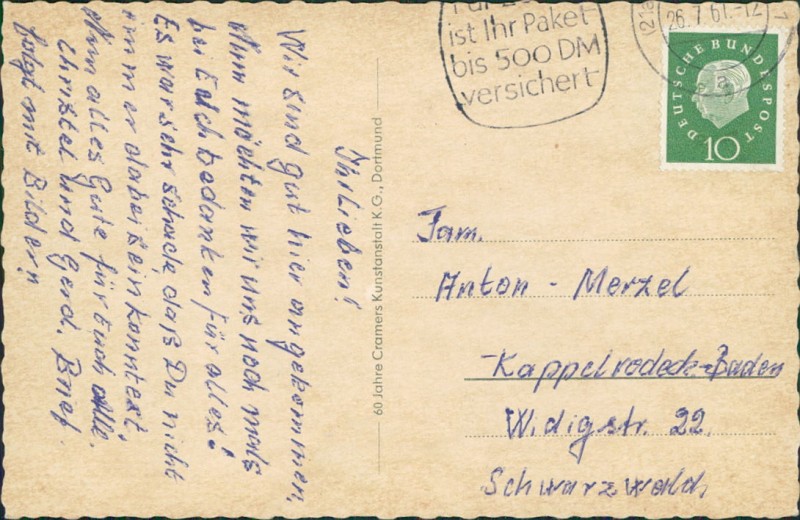 Ihr Lieben!
Wir sind gut hier angekommen,
Nun möchten wir uns noch mals
bei Euch bedanken für alles!
Es war sehr schade daß Du nicht
immer dabei sein konntest,
Nun alles Gute für Euch Alle.
Christel und Gerd. Brief
folgt mit Bildern
60 Jahre Cramers Kunstanstalt K.G., Dortmund
ist Ihr Paket
bis 500 DM
versichert
26.7.61.-12
DEUTSCHE BUNDESPOST
10
Fam.
Anton - Merzel
Kappelrodeck-Baden
Widigstr. 22.
Schwarzwald